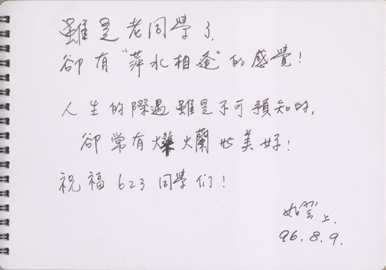 雖是老同學了,
卻有“萍水相逢”的感覺!
人生的際遇雖是不可預知的,
卻常有燦爛哋美好!
祝福 623 同學们!
如雲上.
96.8.9.